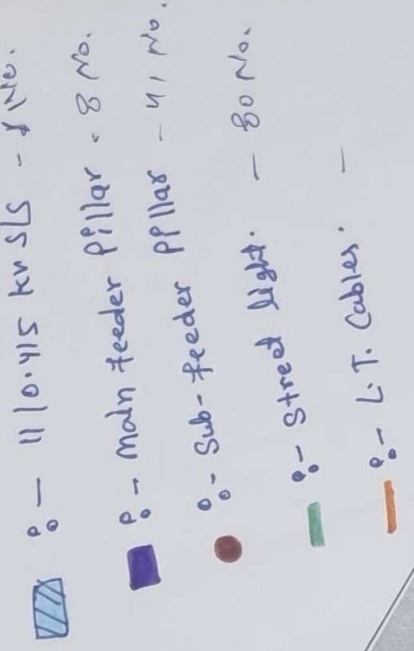 :- 11/0.415 KV S/S - 1 No.
:- Main feeder Pillar - 8 No.
:- Sub-feeder Pillar - 41 No.
:- Street light. - 80 No.
:- L.T. Cables. -